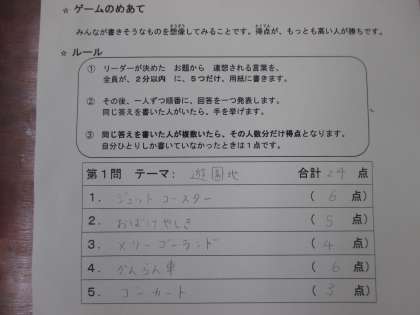 ☆ ゲームのめあて
みんなが書きそうなものを想像してみることです。得点が、もっとも高い人が勝ちです。
☆ ルール
① リーダーが決めた お題から 連想される言葉を、
全員が、2分以内 に、5つだけ、用紙に書きます。
② その後、一人ずつ順番に、回答を一つ発表します。
同じ答えを書いた人がいたら、手を挙げます。
③ 同じ答えを書いた人が複数いたら、その人数分だけ得点となります。
自分ひとりしか書いていなかったときは1点です。
第1問 テーマ: 遊園地 合計 24 点
1. ジェットコースター ( 6 点)
2. おばけやしき ( 5 点)
3. メリーゴーランド ( 4 点)
4. かんらん車 ( 6 点)
5. ゴーカート ( 3 点)